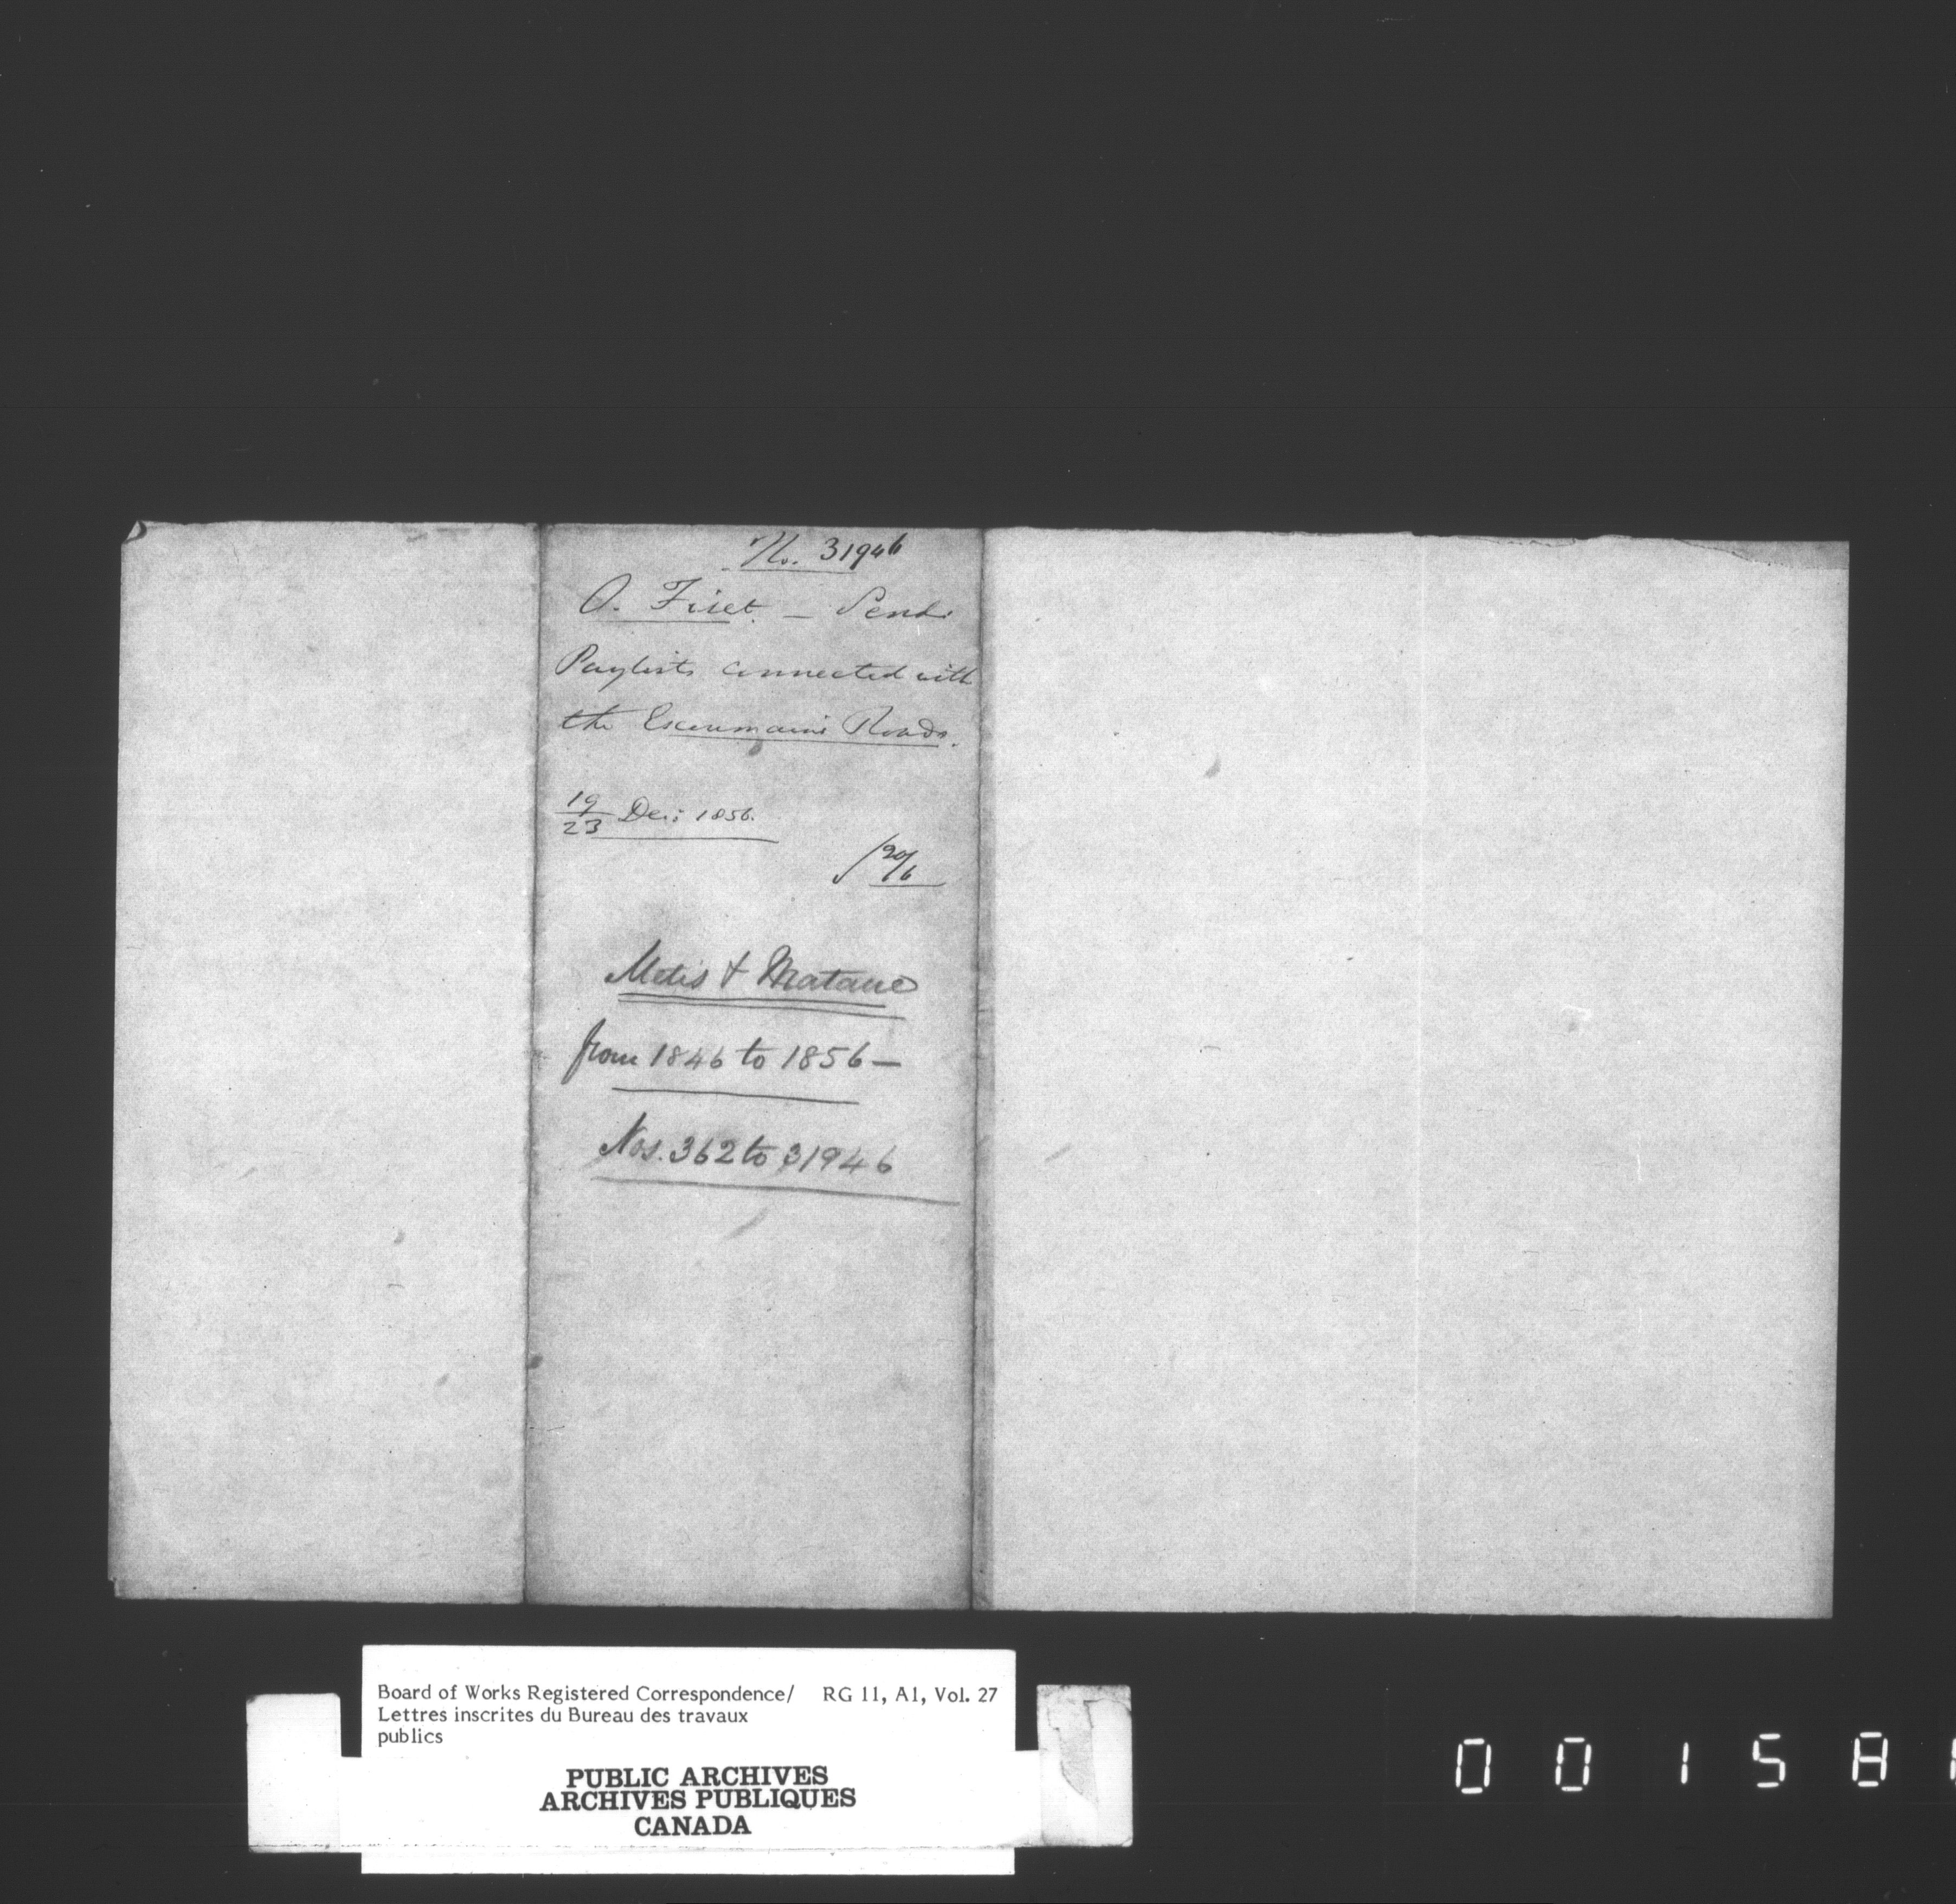 No. 31946
O. Fiset. — Sends
Paylists connected with
the Escoumains Roads.
19/23 Dec: 1856.
Metis & Matane
from 1846 to 1856 —
Nos. 362 to 31946
Board of Works Registered Correspondence/ RG 11, A1, Vol. 27
Lettres inscrites du Bureau des travaux
publics
PUBLIC ARCHIVES
ARCHIVES PUBLIQUES
CANADA
0 0 1 5 8